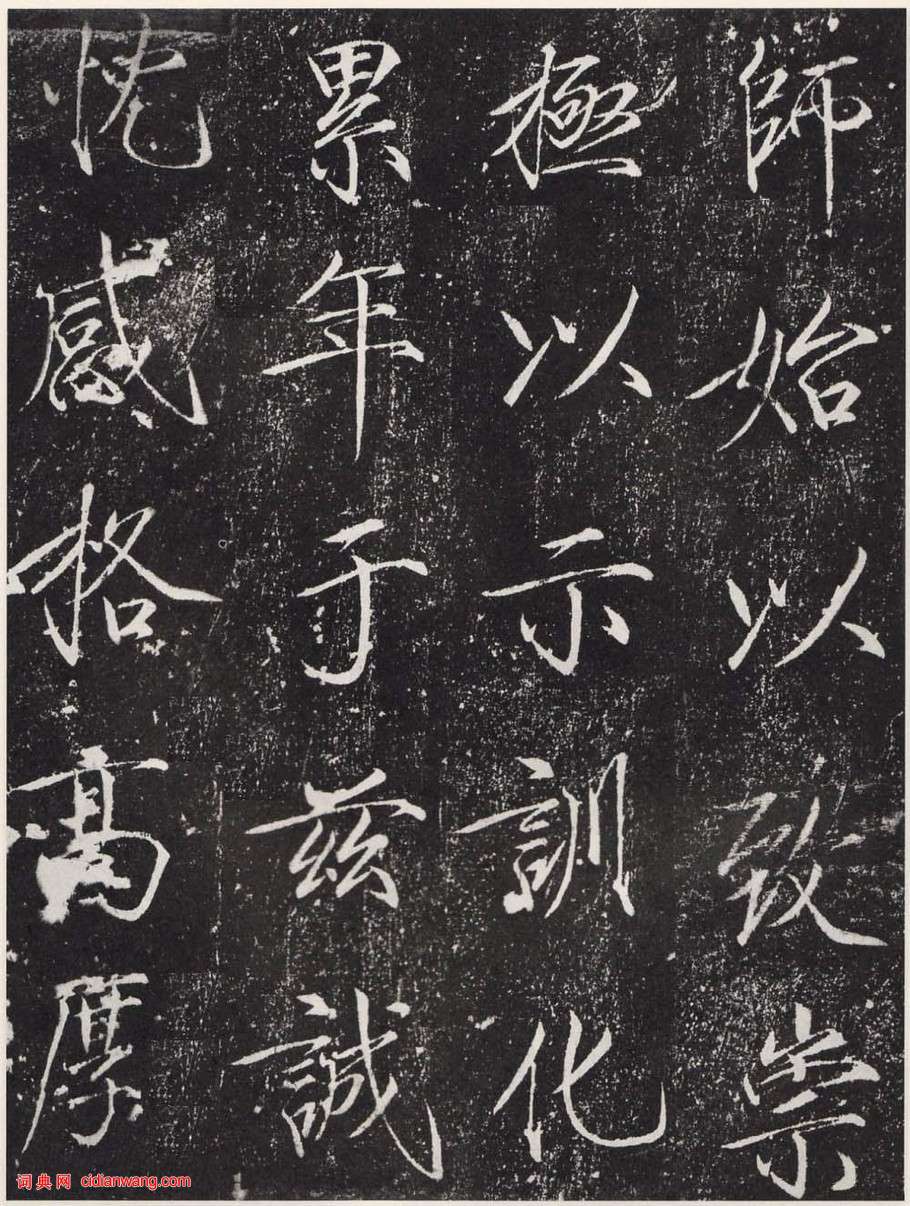 師始以致崇
極以示訓化
累年于兹誠
忱感格高厚
词典网 cidianwang.com